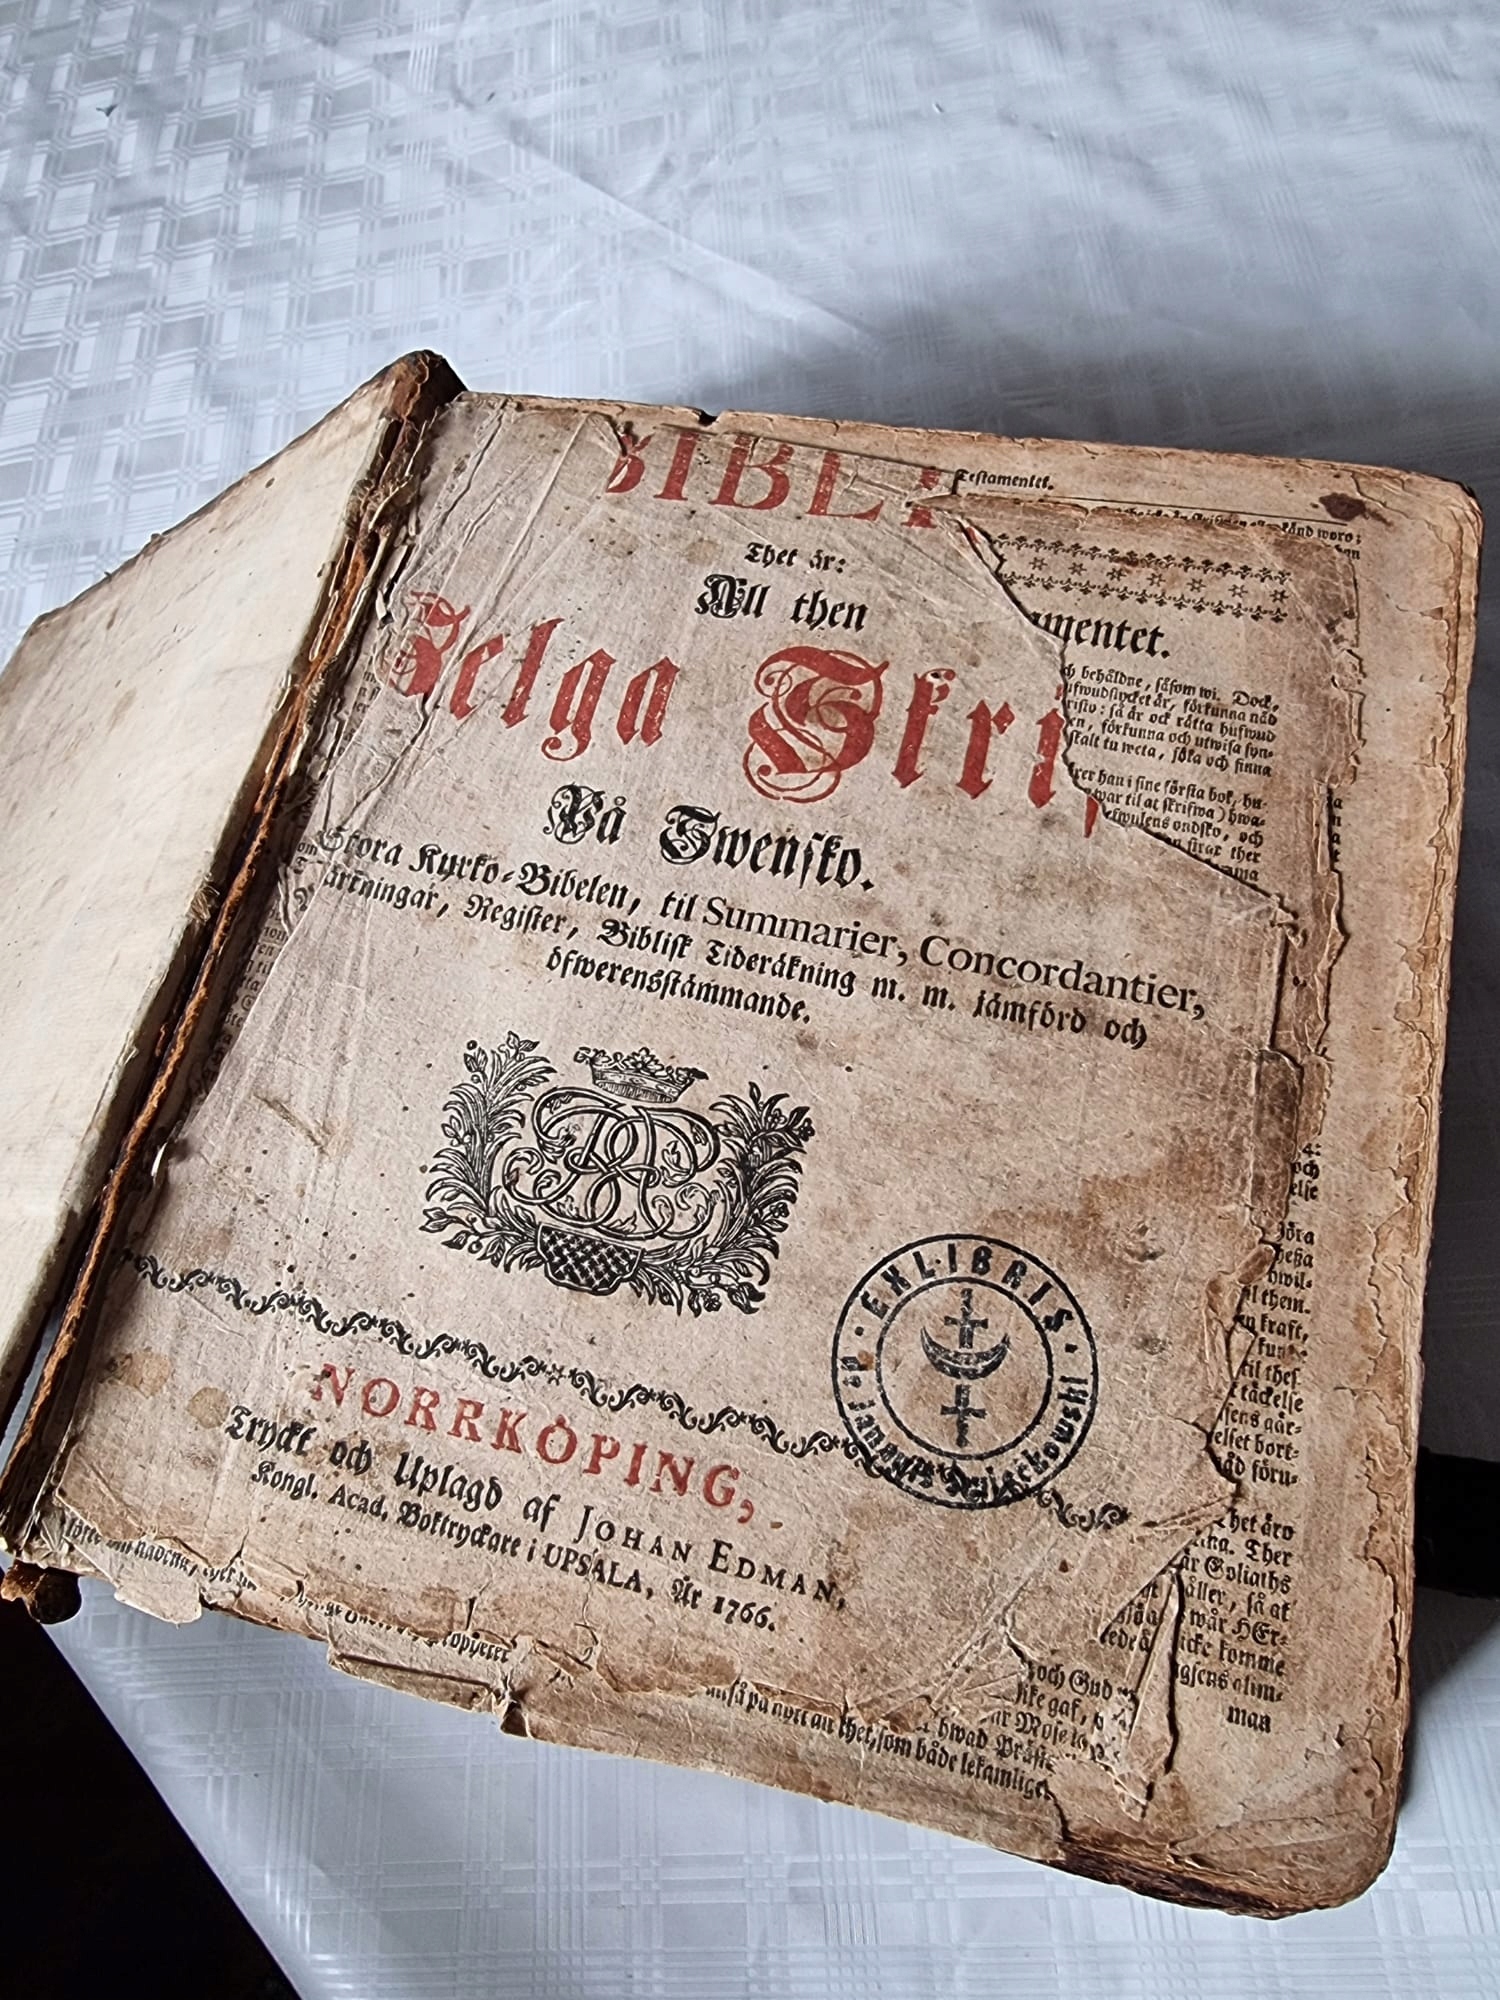 BIBLI
Thet är:
All then
Helga Skri
På Swensko.
Stora Kyrko-Bibelen, til Summarier, Concordantier,
ärkningar, Register, Biblisk Tideräkning m. m. jämförd och
öfwerensstämmande.
EX LIBRIS
Janusz Niećkowski
NORRKÖPING,
Tryckt och Uplagd af JOHAN EDMAN,
Kongl. Acad. Boktryckare i UPSALA, År 1766.
Testamentet.
känd woro;
amentet.
behåldne, såsom wi. Dock,
ufwudstycket är, förkunna nåd
risto: så är ock rätta hufwud
en, förkunna och utwisa syn-
skalt tu weta, söka och finna
rer han i sine första bok, hu-
war til at skrifwa) hwa-
efwulens ondsko, och
ther
4:
och
else
jöra
heßa
hwil-
them.
kraft,
kun
til thes
täckelse
sens går-
elset bort-
nåd föru-
Thet äro
Ther
är Goliaths
åller, så at
wår HEr-
icke komme
man
och Gud
ike gaf,
ar Mose
hwad
på nytt an thet, som både lekamliget